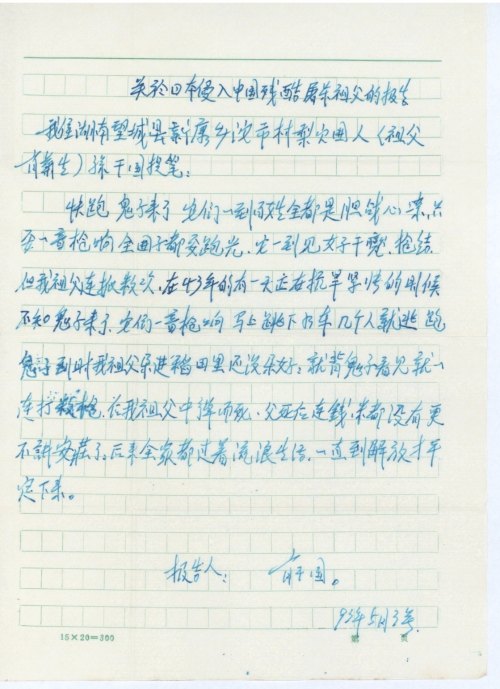 关於日本侵入中国残酷屠杀祖父的报告
我是湖南望城县新康乡沱市村梨
人（祖父
肖
生）孙干国提笔：
快跑 鬼子来了 它们一到百姓全都是胆战心
只
一音枪响全
子都要跑光 它一到见女子干
抢结
但我祖父连抓数次，在43年的有一天正在抗旱紧
的时候
不知鬼子来了，它们一音枪响 马上跳下水车几个人就逃跑
鬼子到时我祖父
进稻田里还没
好；就背鬼子看见就一
连打
枪，
我祖父中弹而死，父死
连钱米都没有更
不讲安葬了。后来全家都过着流浪生活，一直到解放才平
定下来。
报告人：肖干国。
5月3号
15×20=300
第 页